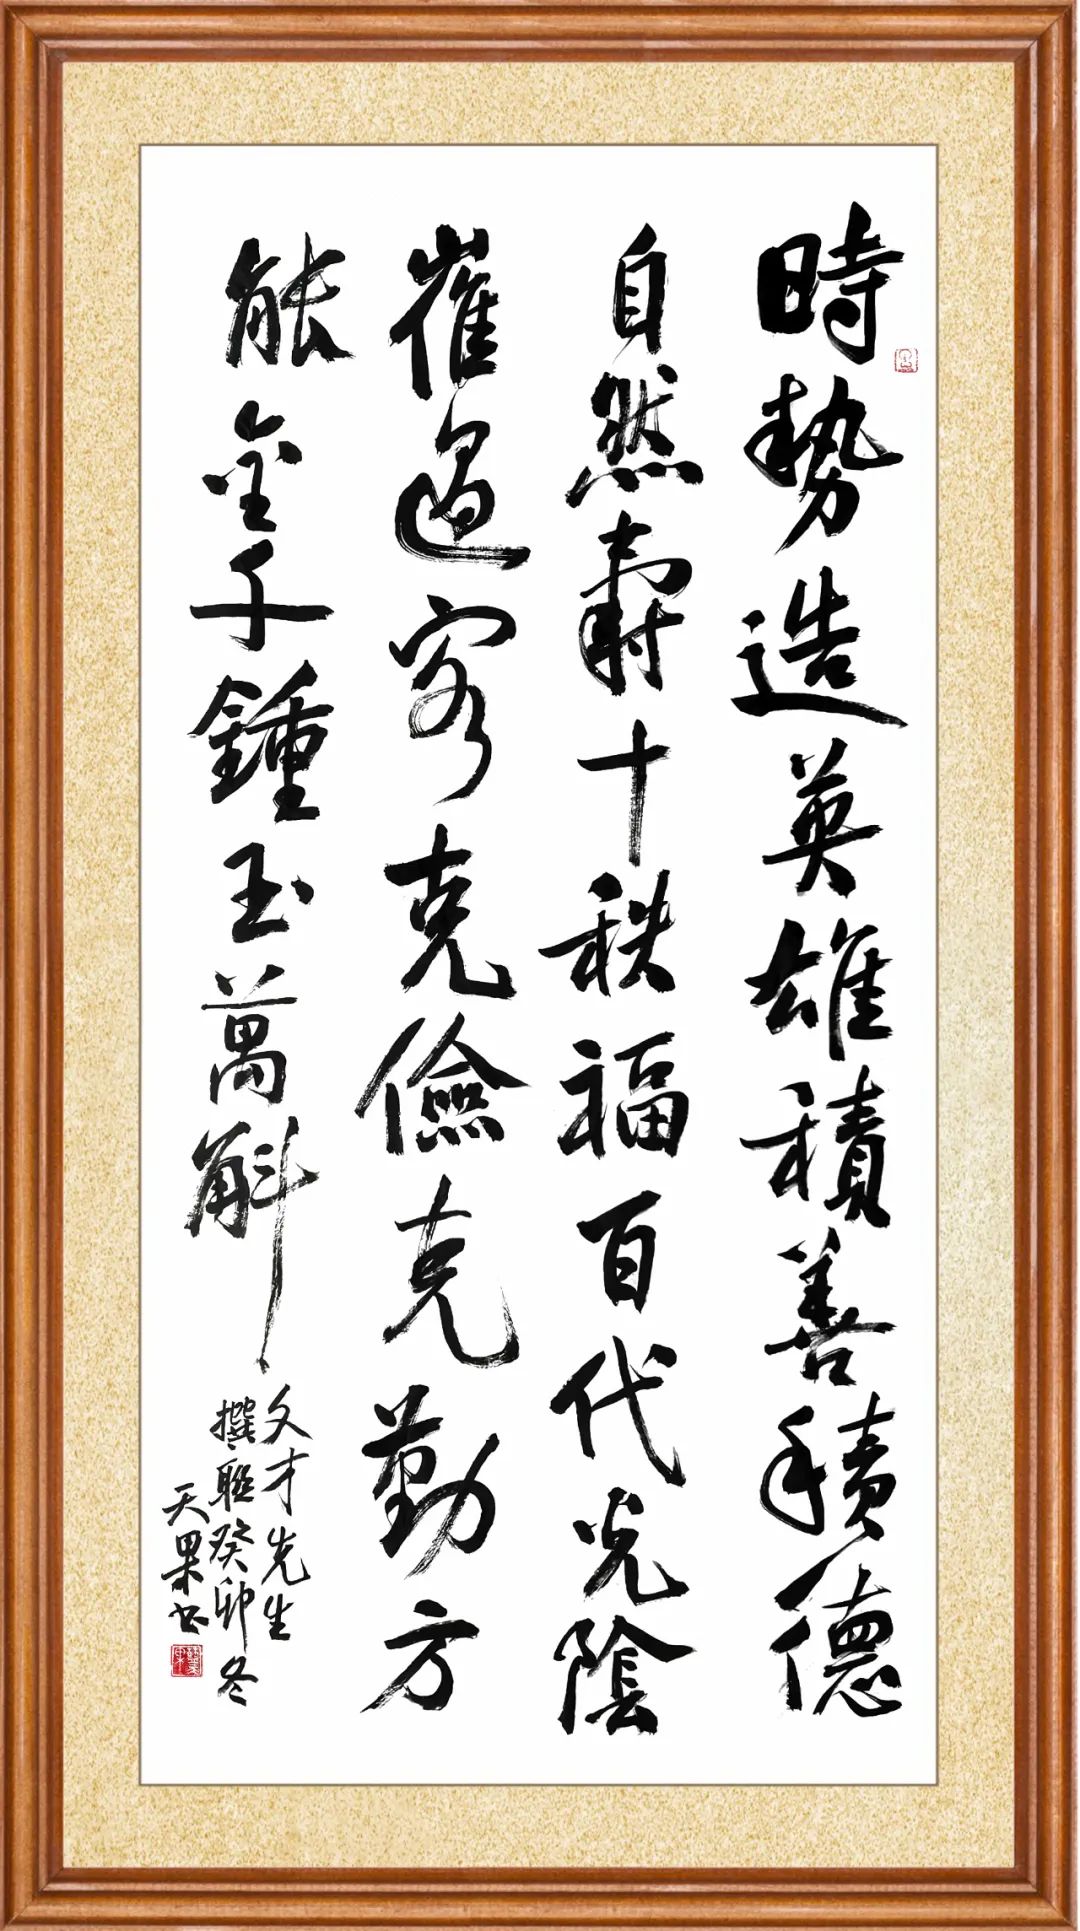 時勢造英雄積善積德
自然壽十秩福百代光陰
催過客克儉克勤方
能金千鍾玉萬斛
文才先生
撰聯癸卯冬
天果书